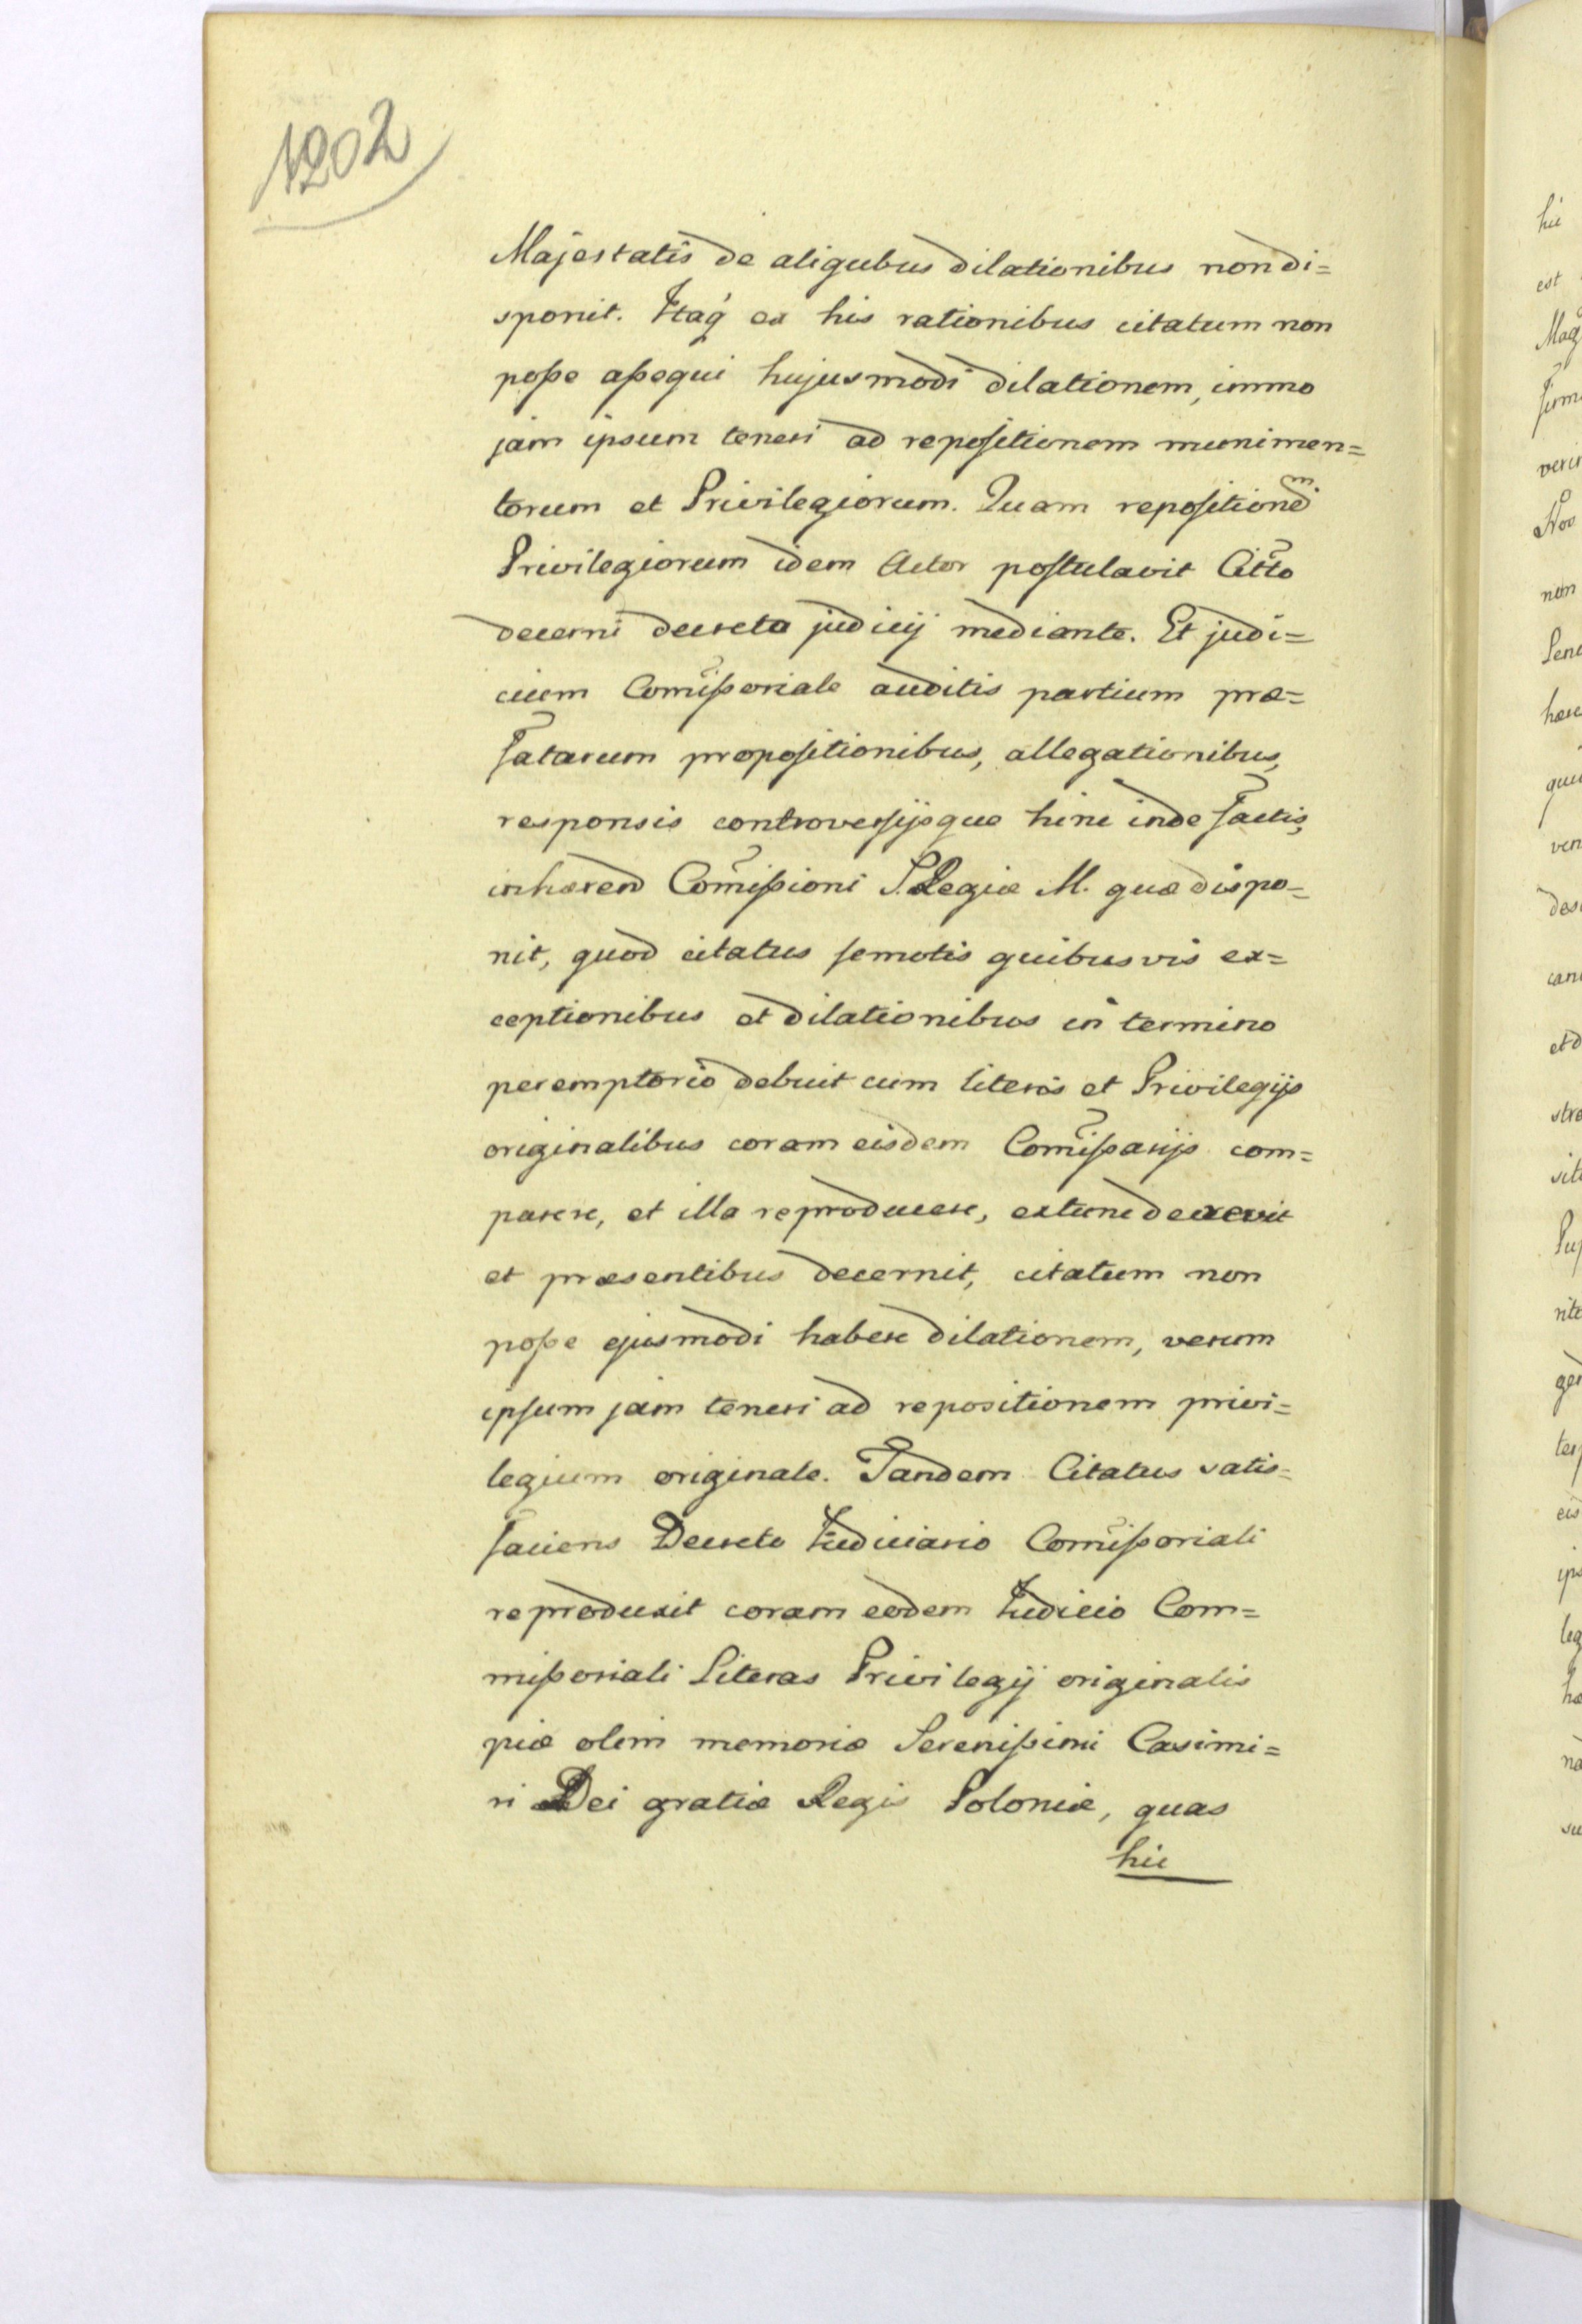 1202
Majestatis de aliqubus dilationibus non di=
sponit. Itaq́ ex his rationibus citatum non
poße aßequi hujusmodi dilationem, immo
jam ipsum teneri ad repositionem munimen=
torum et Privilegiorum. Quam repositionem
Privilegiorum idem Actor postulavit Citto
decerni decreto judicij mediante. Et judi=
cium Comißoriale auditis partium præ=
fatarum propositionibus, allegationibus,
responsis controversijsque hinc inde factis,
inhærend Comißioni S. Regiæ M. quæ dispo=
nit, quod citatus semotis quibusvis ex=
ceptionibus et dilationibus in termino
peremptorio debuit cum literis et Privilegijs
originalibus coram eisdem Comißarijs com=
parere, et illa reproducere, extunc decrevit
et præsentibus decernit, citatum non
poße ejusmodi habere dilationem, verum
ipsum jam teneri ad repositionem privi=
legium originale. Tandem Citatus satis=
faciens Decreto Judiciario Comißoriali
reproduxit coram eodem Judicio Com=
mißoriali Literas Privilegij originalis
piæ olim memoriæ Serenißimi Casimi=
ri Dei gratiæ Regis Poloniæ, quas
hic
hic
est
nun
et d